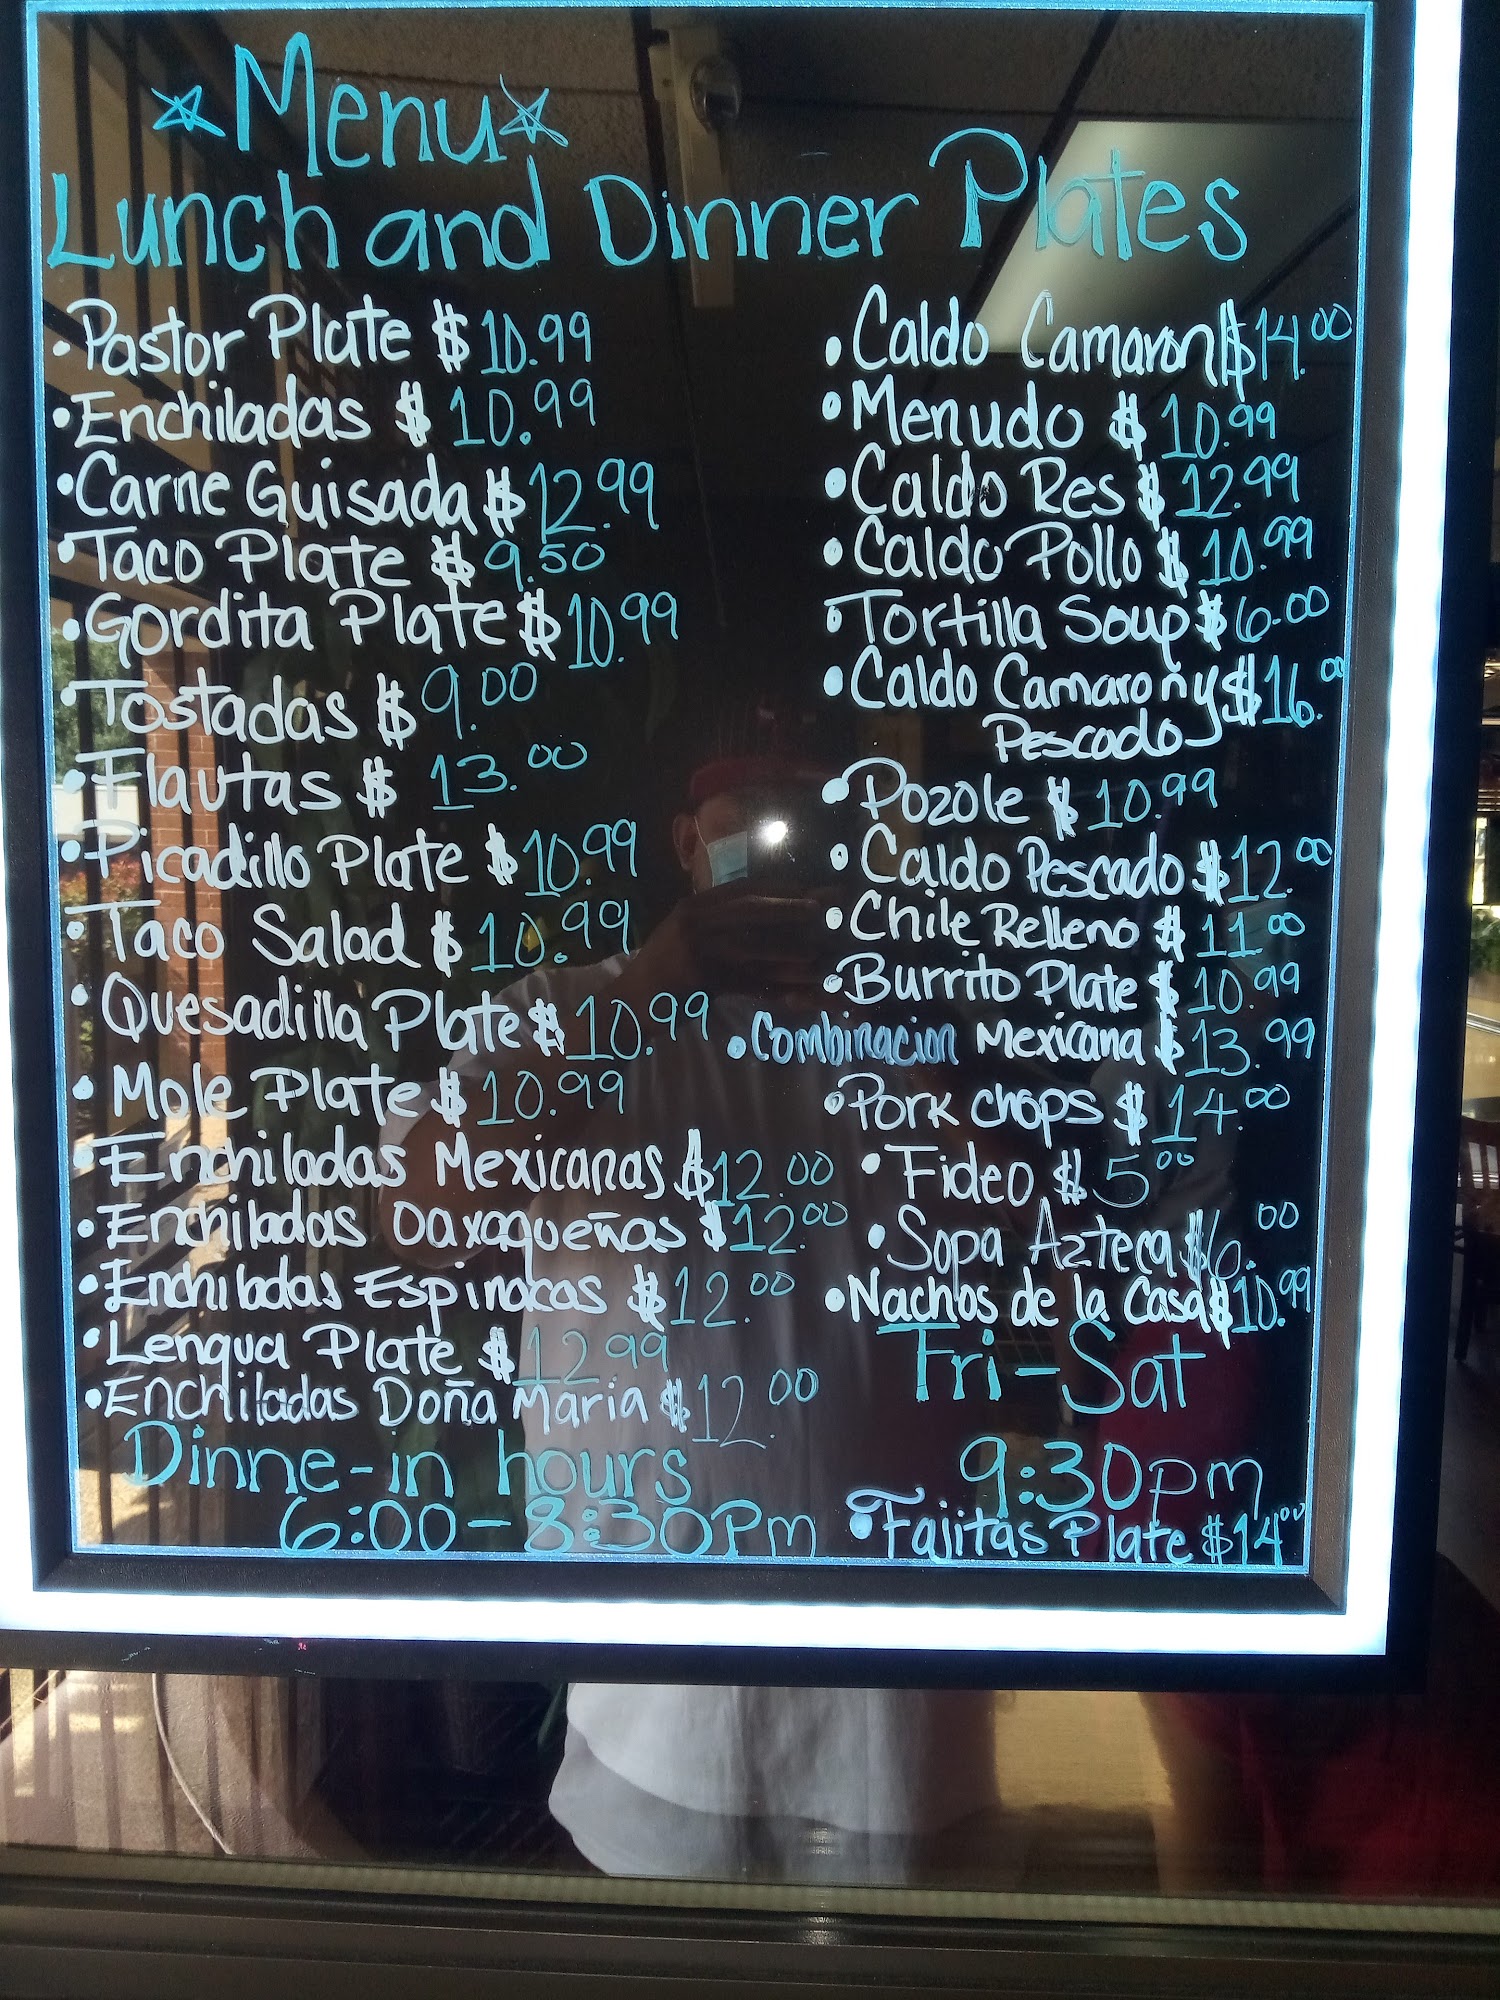 Menu
Lunch and Dinner Plates
• Pastor Plate $10.99
• Enchiladas $10.99
• Carne Guisada $12.99
• Taco Plate $9.50
• Gordita Plate $10.99
• Tostadas $9.00
• Flautas $13.00
• Picadillo Plate $10.99
• Taco Salad $10.99
• Quesadilla Plate $10.99
• Mole Plate $10.99
• Enchiladas Mexicanas $12.00
• Enchiladas Oaxaqueñas $12.00
• Enchiladas Espinacas $12.00
• Lengua Plate $12.99
• Enchiladas Doña Maria $12.00
Dinne-in hours
6:00-8:30Pm
• Caldo Camaron $14.00
• Menudo $10.99
• Caldo Res $12.99
• Caldo Pollo $10.99
• Tortilla Soup $6.00
• Caldo Camaron y $16.00
Pescado
• Pozole $10.99
• Caldo Pescado $12.00
• Chile Relleno $11.00
• Burrito Plate $10.99
• Combinacion Mexicana $13.99
• Pork chops $14.00
• Fideo $5.00
• Sopa Azteca $6.00
• Nachos de la Casa $10.99
Fri-Sat
9:30pm
• Fajitas Plate $14.00